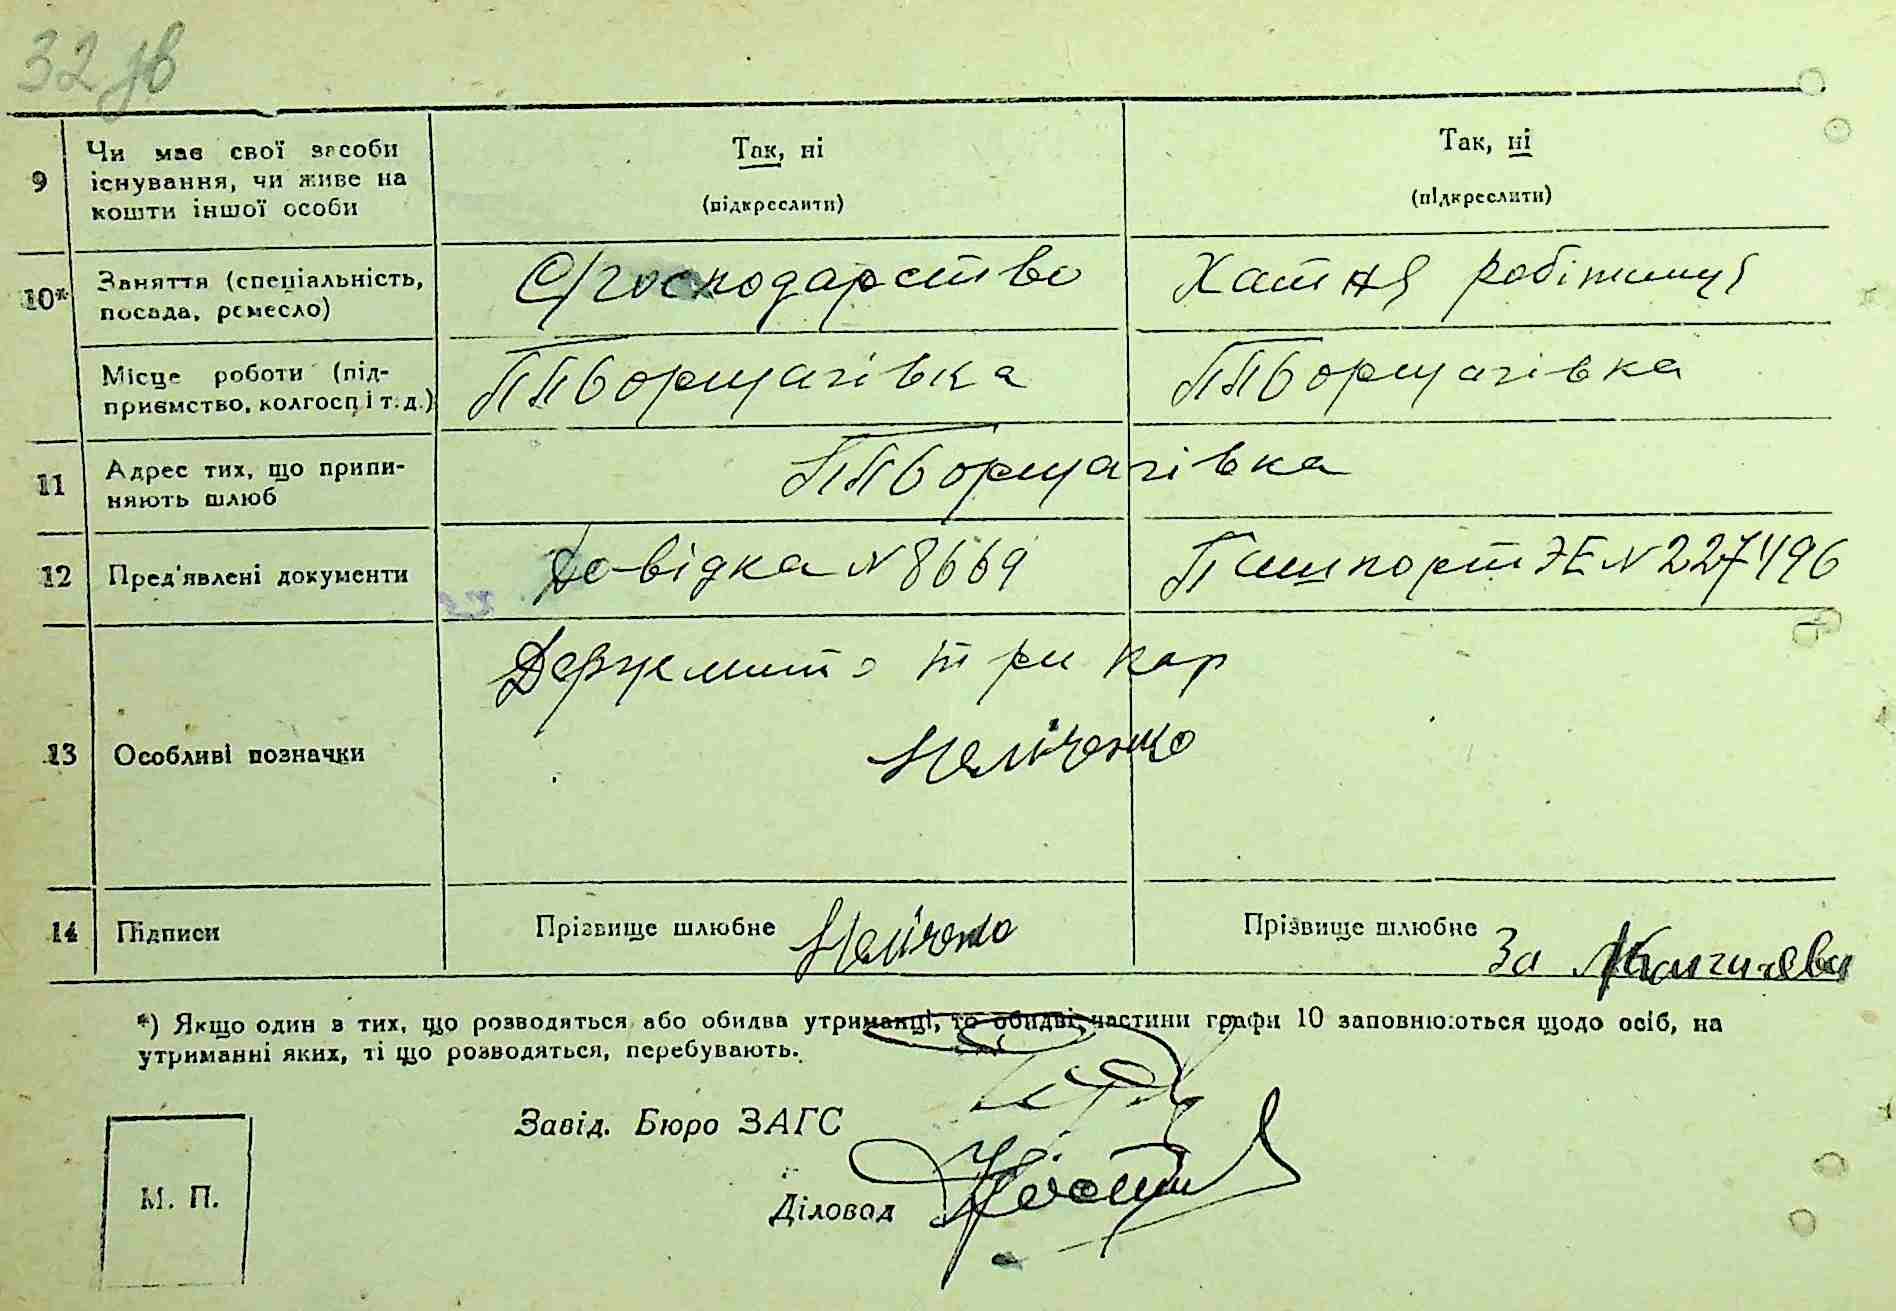 32 зв
9 Чи має свої засоби існування, чи живе на кошти іншої особи
Так, ні
(підкреслити)
Так, ні
(підкреслити)
10* Заняття (спеціальність, посада, ремесло)
С/господарство
Хатня робітниця
Місце роботи (підприємство, колгосп і т. д.)
ППБорщагівка
ППБорщагівка
11 Адрес тих, що припиняють шлюб
ППБорщагівка
12 Пред'явлені документи
Довідка N 8669
Пашпорт ЭЕ N 227496
13 Особливі позначки
Держмито три кар
14 Підписи
Прізвище шлюбне
Прізвище шлюбне За
*) Якщо один з тих, що розводяться або обидва утриманці, то обидві частини графи 10 заповнюються щодо осіб, на
утриманні яких, ті що розводяться, перебувають.
Завід. Бюро ЗАГС
М. П.
Діловод